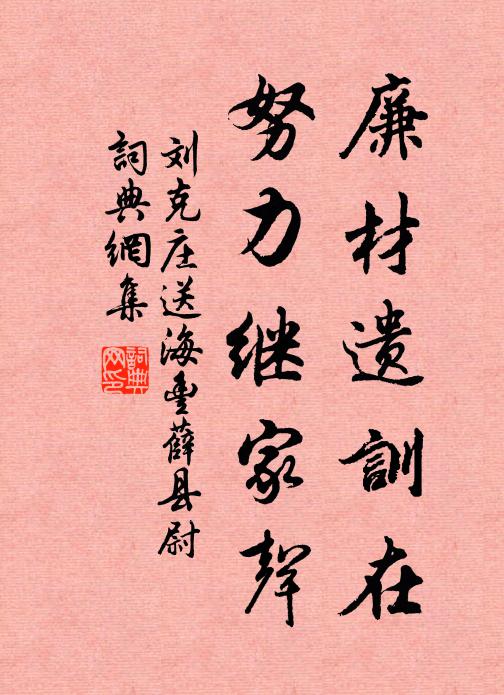 廉材遗訓在
努力继家聲
刘克庄送海豊薛县尉
詞典網集
詞典网印